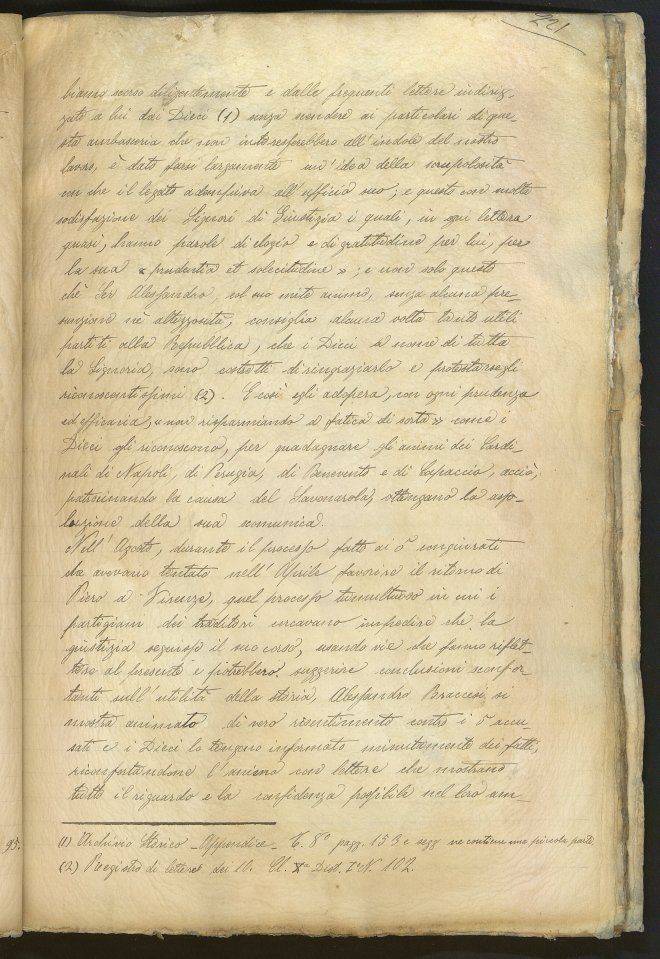 221
biamo scorso diligentemente e dalle frequenti lettere indiriz-
zate a lui dai Dieci (1) senza scendere ai particolari di que-
sta ambasceria che non interesserebbero all' indole del nostro
lavoro, è dato farsi largamente un' idea della scrupolosità
con che il legato adempiva all' ufficio suo; e questo con molta
sodisfazione dei Signori di Giustizia i quali, in ogni lettera
quasi, hanno parole di elogio e di gratitudine per lui, per
la sua « prudentia et solecitudine »; e non solo questo
chè Ser Alessandro, col suo mite animo, senza alcuna pre-
sunzione nè alterezza, consiglia alcuna volta tanto utili
partiti alla Repubblica, che i Dieci a nome di tutta
la Signoria, sono costretti di ringraziarlo e protestarsegli
riconoscentissimi (2). E così egli adopera, con ogni prudenza
ed efficacia, « non risparmiando a fatica di sorta » come i
Dieci gli riconoscono, per guadagnare gli animi dei Cardi-
nali di Napoli, di Perugia, di Benevento e di Capaccio, acciò,
patrocinando la causa del Savonarola, ottengano la asso-
luzione della sua scomunica.
Nell' Agosto, durante il processo fatto ai 5 congiurati
che avevano tentato nell' Aprile favorire il ritorno di
Piero a Firenze, quel processo tumultuoso in cui i
partigiani dei traditori cercavano impedire che la
giustizia seguisse il suo corso, usando vie che fanno riflet-
tere al presente e potrebbero suggerire conclusioni sconfor-
tanti sull' utilità della storia, Alessandro Braccesi si
mostra animato di vero risentimento contro i 5 accu-
sati e i Dieci lo tengono informato minutamente dei fatti,
riconfortandone l' animo con lettere che mostrano
tutto il riguardo e la confidenza possibile nel loro am-
(1) Archivio Storico - Appendice - T. 8° pagg. 153 e segg ne contiene una piccola parte
(2) Registro di lettere dei 10. Cl. Xa Dist. Ia N. 102.
95.